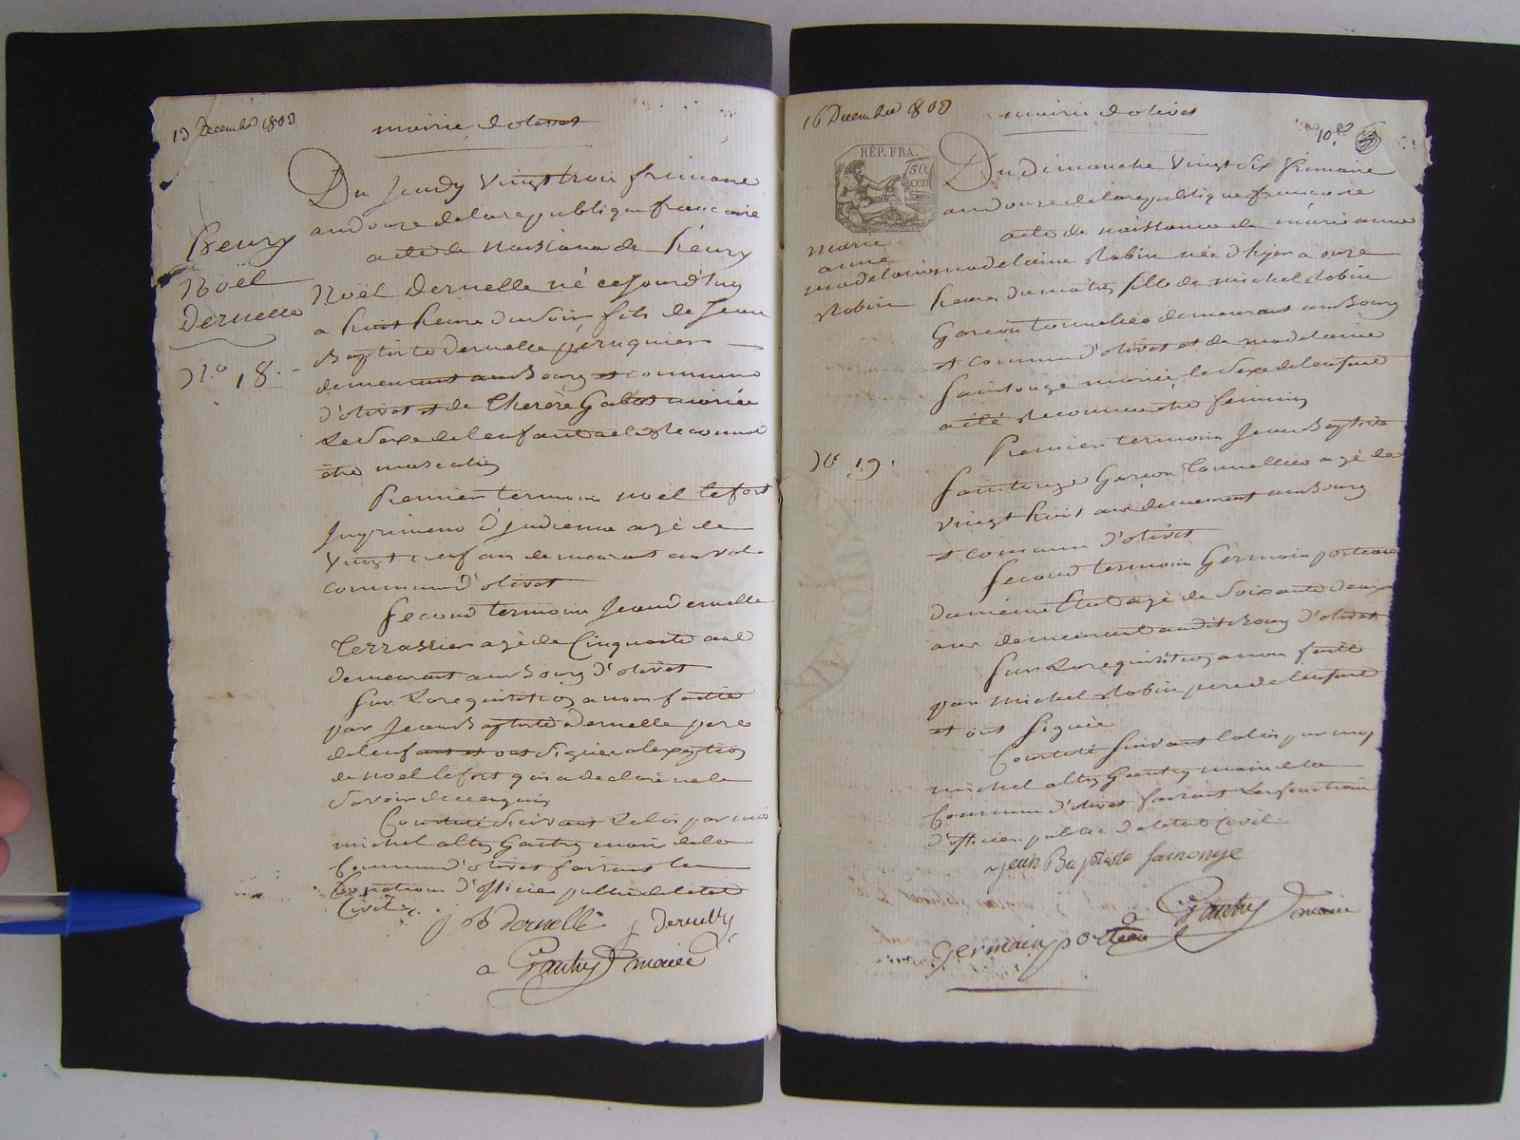 15 Decembre 1803
mairie d'olivet
Du Jeudy vingt trois frimaire
an douze de la republique francaise
acte de naissance de heury
Noël Dernelle né ce jourd'huy
a huit heure du soir fils de Jean
Baptiste dernelle péruquier
demeurant au Bourg et commune
d'olivet et de Therèse Gabot mariée
Le Sexe de l'enfant a eté reconnu
être masculin
Premier termoin noël lefort
Imprimeur d'indienne agé de
Vingt neuf ans demeurant au val
commune d'olivet
Second termoin Jean dernelle
Terrassier agé de Cinquante ans
demeurant au Bourg d'olivet
Sur La requisition a nous faitte
par Jean Baptiste Dernelle pere
de l'enfant et ont Signé a l'exeption
de noël lefort qui a declaré ne le
Savoir de ce enquis
Constaté Suivant La loi par moi
michel altin Gautry maire de la
Commune d'olivet faisant les
fonctions d'officier public de letat
Civil
J B Dernelle J Dernelle
Gautry maire
heury
Noël
Dernelle
N.o 18.
16 Decembre 1803
mairie d'olivet
10.
RÉP. FRA.
Du dimanche Vingt Six frimaire
an douze de la republique francaise
acte de naissance de marie anne
madelaine Robin née d'hyer a onze
heures du matin fille de michel Robin
Garcon tonnellier demeurant au Bourg
et commune d'olivet et de madelaine
Saintonge mariée le Sexe de l'enfant
a été reconnu être feminin
Premier termoin Jean Baptiste
Saintonge Garcon Tonnellier agé de
vingt huit ans demeurant au Bourg
et commune d'olivet
Second termoin Germain porteau
du même Etat agé de Soixante deux
ans demeurant audit Bourg d'olivet
Sur La requisition a nous faitte
par michel Robin pere de l'enfant
et ont Signé
Constaté Suivant la loi par moy
michel altin Gautry maire de la
Commune d'olivet faisant Les fonctions
d'officier public de letat Civil
Jean Baptiste Sainonge
Gautry maire
Germain porteau
marie
anne
madelaine
Robin
N.o 19.